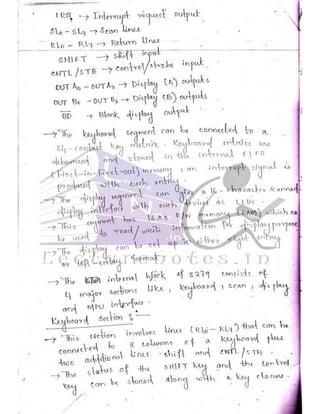 IRQ → Interrupt request output
SL0 - SL3 → Scan lines
RL0 - RL7 → Return lines
SHIFT → shift input
CNTL/STB → control/strobe input.
OUT A0 - OUT A3 → Display (A) outputs
OUT B0 - OUT B3 → Display (B) outputs
BD → Blank display output
→ The keyboard segment can be connected to a
64-contact key matrix. Keyboard entries are
debounced and stored in the internal FIFO
(First-in-First-out) memory, an interrupt signal is
produced with each entry.
→ The display segment can 16-character scanned
display interface with such devices as LEDs.
→ This segment has 16x8 R/W memory (RAM) which can
be used to read/write information for display purpose
→ The display can be set up either right entry
or left-entry format.
→ The internal block of 8279 consists of
4 major sections like, keyboard, scan, display
and MPU Interface.
Keyboard section :-
→ This section involves lines (RL0 - RL7) that can be
connected to 8 columns of a keyboard plus
two additional lines shift and CNTL/STB.
→ The status of the SHIFT key and the control
key can be stored along with a key closure.